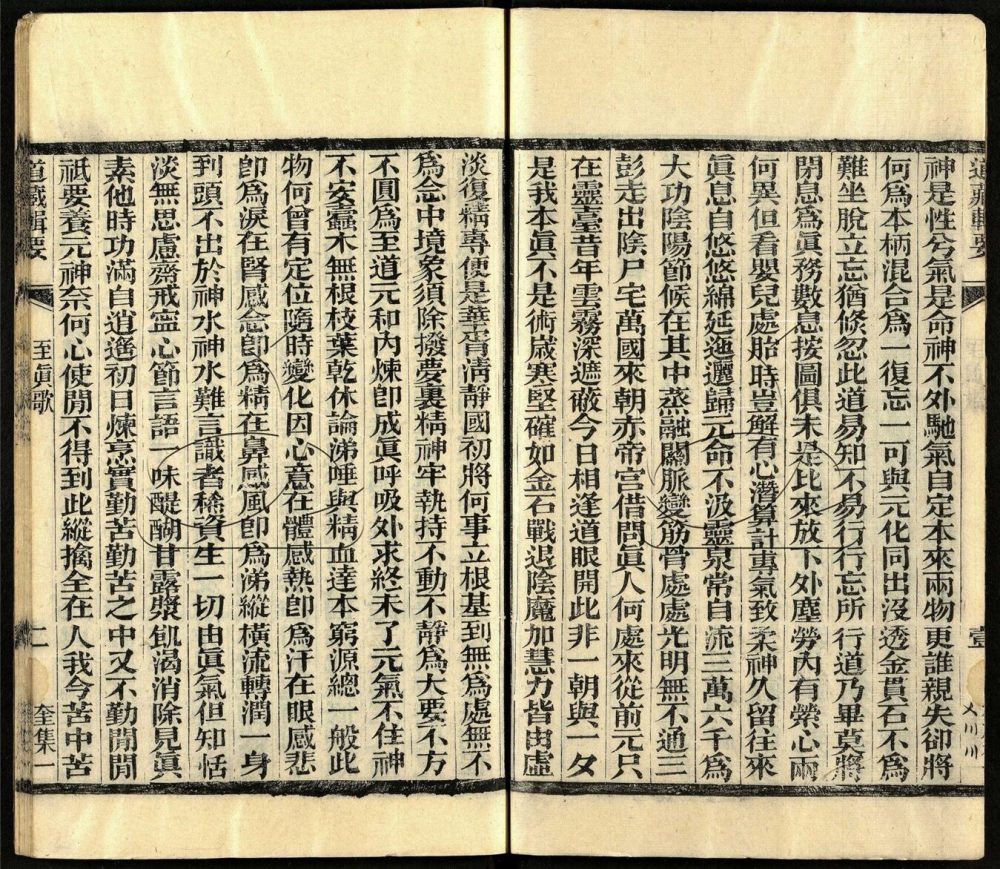 道藏輯要
壹
神是性兮氣是命神不外馳氣自定本來兩物更誰親失卻將
何爲本柄混合爲一復忘一可與元化同出沒透金貫石不爲
難坐脫立忘猶倏忽此道易知不易行行忘所行道乃畢莫將
閉息爲眞務數息按圖俱未是比來放下外塵勞內有縈心兩
何異但看嬰兒處胎時豈解有心潛算計專氣致柔神久留往來
眞息自悠悠綿延迤邐歸元命不汲靈泉常自流三萬六千爲
大功陰陽節候在其中蒸融關脈變筋骨處處光明無不通三
彭走出陰尸宅萬國來朝赤帝宮借問眞人何處來從前元只
在靈臺昔年雲霧深遮蔽今日相逢道眼開此非一朝與一夕
是我本眞不是術歲寒堅確如金石戰退陰魔加慧力皆由虛
淡復精專便是華胥淸靜國初將何事立根基到無爲處無不
爲念中境象須除撥夢裏精神牢執持不動不靜爲大要不方
不圓爲至道元和內煉卽成眞呼吸外求終未了元氣不住神
不安蠹木無根枝葉乾休論涕唾與精血達本窮源總一般此
物何曾有定位隨時變化因心意在體感熱卽爲汗在眼感悲
卽爲淚在腎感念卽爲精在鼻感風卽爲涕縱橫流轉潤一身
到頭不出於神水神水難言識者稀資生一切由眞氣但知恬
淡無思慮齋戒寧心節言語一味醍醐甘露漿飢渴消除見眞
素他時功滿自逍遙初日煉烹實勤苦勤苦之中又不勤閒閒
祗要養元神奈何心使閒不得到此縱擒全在人我今苦中苦
道藏輯要
至眞歌
二
奎集一